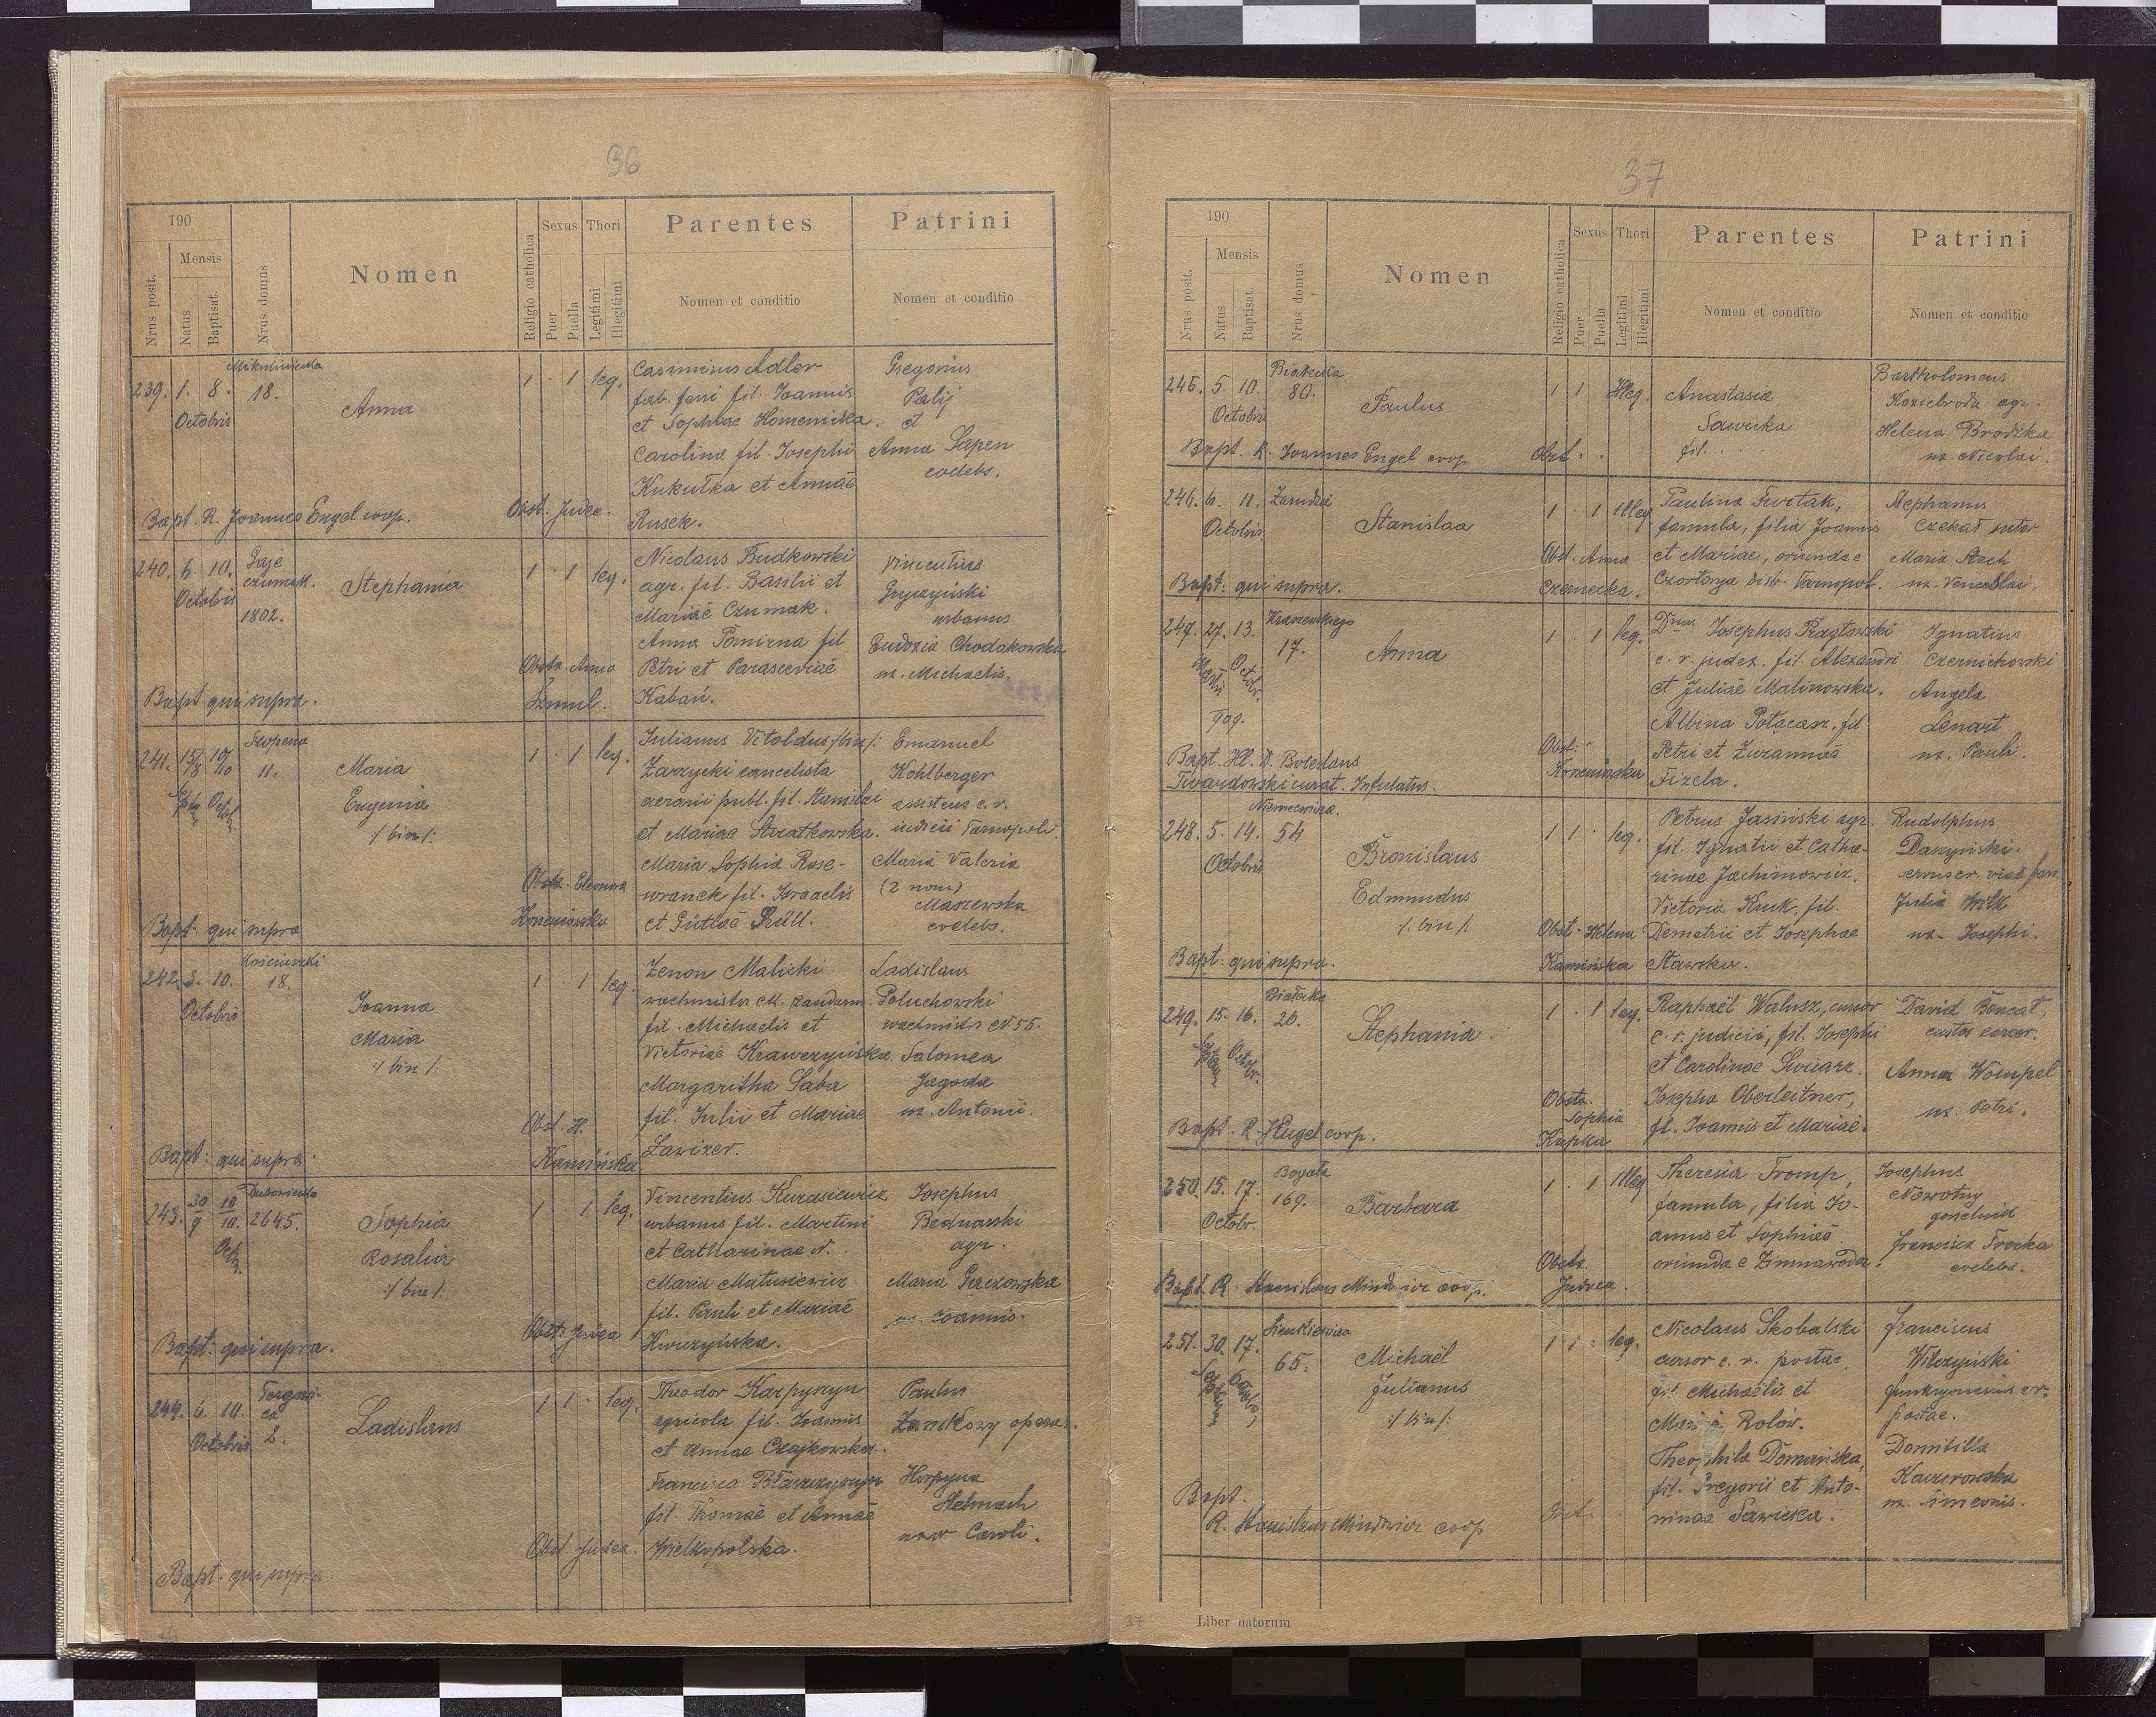 36
190
Mensis
Nrus posit.
Natus
Baptisat.
Nrus domus
Nomen
Religio catholica
Sexus
Puer
Puella
Thori
Legitimi
Illegitimi
Parentes
Nomen et conditio
Patrini
Nomen et conditio
239. 1. 8. 18.
Octobris
Anna
1 · 1 leg.
Casimirus Adler
fab. ferri fil. Joannis
et Sophiae Homenicka.
Carolina fil. Josephi
Kukułka et Annae
Rusek.
Gregorius
Palij
et
Anna Sapen
coelebs.
Bapt. R. Joannes Engel coop.
Obst. Judea.
240. 6. 10.
Octobris
1802.
Stephania
1 · 1 leg.
Nicolaus Budkowski
agr. fil. Basilii et
Mariae Czumak.
Anna Pomirna fil
Petri et Parasceviae
Kabań.
Vincentius
Gryczyński
urbanus
Eudozia Chodakowska
ux. Michaelis.
Obstr. Anna
Bapt. qui supra.
241. 15/8 10/10 11.
Octobr.
Maria
Eugenia
:/ bin /:
1 · 1 leg.
Julianus Vitoldus /bin/:
Zarzycki cancelista
aerarii publ. fil. Stanislai
et Mariae Stratkowska.
Maria Sophia Rose-
wranek fil. Israelis
et Gütlae Prüll.
Emanuel
Kohlberger
assistens c. r.
indicii Tarnopoli.
Maria Valeria
(2 nom)
Maszewska
coelebs.
Obstr. Eleonora
Koncuńska
Bapt. qui supra
242. 3. 10. 18.
Octobris
Joanna
Maria
:/ bin /:
1 · 1 leg.
Zenon Malicki
wachmister ck. zandarm.
fil. Michaelis et
Victoriae Krawczyńska.
Margaritha Saba
fil. Julii et Mariae
Lawizer.
Ladislaus
Poluchowski
wachmistr N 55.
Salomea
Jagoda
ux. Antonii.
Obst. H.
Kamińska
Bapt. qui supra.
243. 30/9 10/10. 2645.
Sophia
Rosalia
:/ bin /:
1 · 1 leg.
Vincentius Kurasiewicz
urbanus fil. Martini
et Catharinae N.
Maria Matusiewicz
fil. Pauli et Mariae
Josephus
Bednarski
agr.
Maria Graczowska
ux. Joannis.
Obstr. Judea
Bapt. qui supra.
244. 6. 10.
Octobris 2.
Ladislaus
1 1 · leg.
Theodor Karpyszyn
agricola fil. Joannis
et Annae Czajkowska.
Francisca
fil. Thomae et Annae
Wielkopolska.
Paulus
Zamkowy opera.
Horpyna
Helmach
uxor Caroli.
Obst. Judea.
Bapt. qui supra
37
190
Mensis
Nrus posit.
Natus
Baptisat.
Nrus domus
Nomen
Religio catholica
Sexus
Puer
Puella
Thori
Legitimi
Illegitimi
Parentes
Nomen et conditio
Patrini
Nomen et conditio
245. 5. 10. 80.
Octobris
Paulus
1 1 Illeg.
Anastasia
Sawicka
fil. . .
Bartholomeus
Koziebroda agr.
Helena Brodzka
ux. Nicolai.
Bapt. R. Joannes Engel coop
Obst. . .
246. 6. 11. Zarudzie
Octobris
Stanislaa
1 · 1 Illeg
Paulina
famula, filia Joannis
et Mariae, oriundae
Czortorya distr. Tarnopol.
Stephanus
Czekał sutor
Maria Stech
ux. Venceslai.
Obst. Anna
Czernecka.
Bapt. qui supra.
247. 27. 13. 17.
Martii Octobr.
909.
Anna
1 · 1 leg.
Dnus Josephus Pragłowski
c. r. judex. fil. Alexandri
et Juliae Malinowska.
Albina Potaczarz, fil
Petri et Zuzannae
Fizela.
Ignatius
Czernichowski
Angela
Lenart
ux. Pauli.
Obst.
Koncuńska
Bapt. Ill. D. Boleslaus
Twardowski curat. Infulatus.
Niemcewicza.
248. 5. 14. 54
Octobris
Bronislaus
Edmundus
:/ bin /:
1 1 · leg.
Petrus Jasiński agr.
fil. Ignatii et Catha-
rinae Jachimowicz.
Victoria Kruk, fil.
Demetrii et Josephae
Stawska.
Rudolphus
Daszyński.
conser. viae ferr.
Julia Wilk
ux. Josephi.
Obst. Helena
Kamińska
Bapt. qui supra.
Białecka
249. 15. 16. 20.
Octobr.
Stephania.
1 · 1 leg.
Raphaël Walusz, cursor
c. r. judicii, fil. Josephi
et Carolinae Śliwiarz.
Josepha Oberleitner,
fil. Joannis et Mariae.
David
custos carcer.
Anna Wompel
ux. Petri.
Obstr.
Sophia
Kupka
Bapt. R. J. Engel coop.
Bogata
250. 15. 17. 169.
Octobr.
Barbara
1 · 1 Illeg
Theresia Tromp,
famula, filia Jo-
annis et Sophiae
oriunda e Zimnawoda.
Josephus
Nowotny
Francisca Trocka
coelebs.
Obstr.
Judaea.
Bapt. R. Stanislaus Mindowicz coop.
Sienkiewicza
251. 30. 17. 65.
Michaël
Julianus
:/ bin /:
1 1 · leg.
Nicolaus Skobalski
cursor c. r. postae.
fil. Michaelis et
Rolów.
Theophila Domańska,
fil. Gregorii et Anto-
ninae Sawicka.
Franciscus
Wilczyński
funkcyonarius c.r.
postae.
Domitilla
Kaczorowska
ux. Simeonis.
Bapt.
R. Stanislaus Mindowicz coop
Obst.
37 Liber natorum